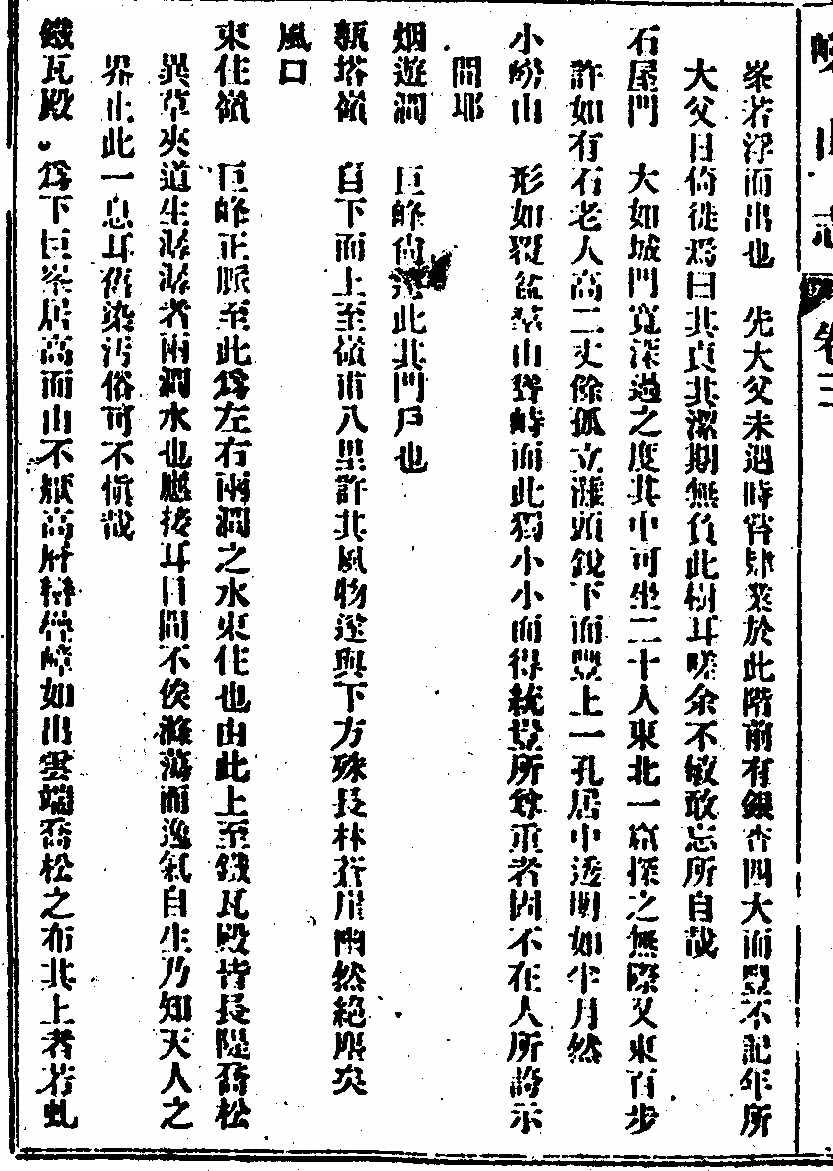 山志 卷二
峯若浮而出也 先大父未遇時嘗肄業於此階前有銀杏四大而豐不記年所
大父日倚徙焉曰其貞其潔期無負此樹耳嗟余不敏敢忘所自哉
石屋門 大如城門寬深過之度其中可坐二十人東北一窩探之無際又東百步
許如有石老人高二丈餘孤立灘頭銳下而豐上一孔居中透明如半月然
小嶗山 形如覆盆羣山聳峙而此獨小小而得統豈所尊重者固不在人所誇示
間耶
烟遊澗 巨峰尚遠此其門戶也
瓶塔嶺 自下而上至嶺甫八里許其風物遂與下方殊長林蒼崖幽然絕塵矣
風口
東住嶺 巨峰正脈至此爲左右兩澗之水東住也由此上至鐵瓦殿皆長隄喬松
異草夾道生潺潺者兩澗水也應接耳目間不俟滌蕩而逸氣自生乃知天人之
界止此一息耳舊染汚俗可不愼哉
鐵瓦殿 爲下巨峯居高而由不厭高層巒疊嶂如出雲端喬松之布其上者若虬